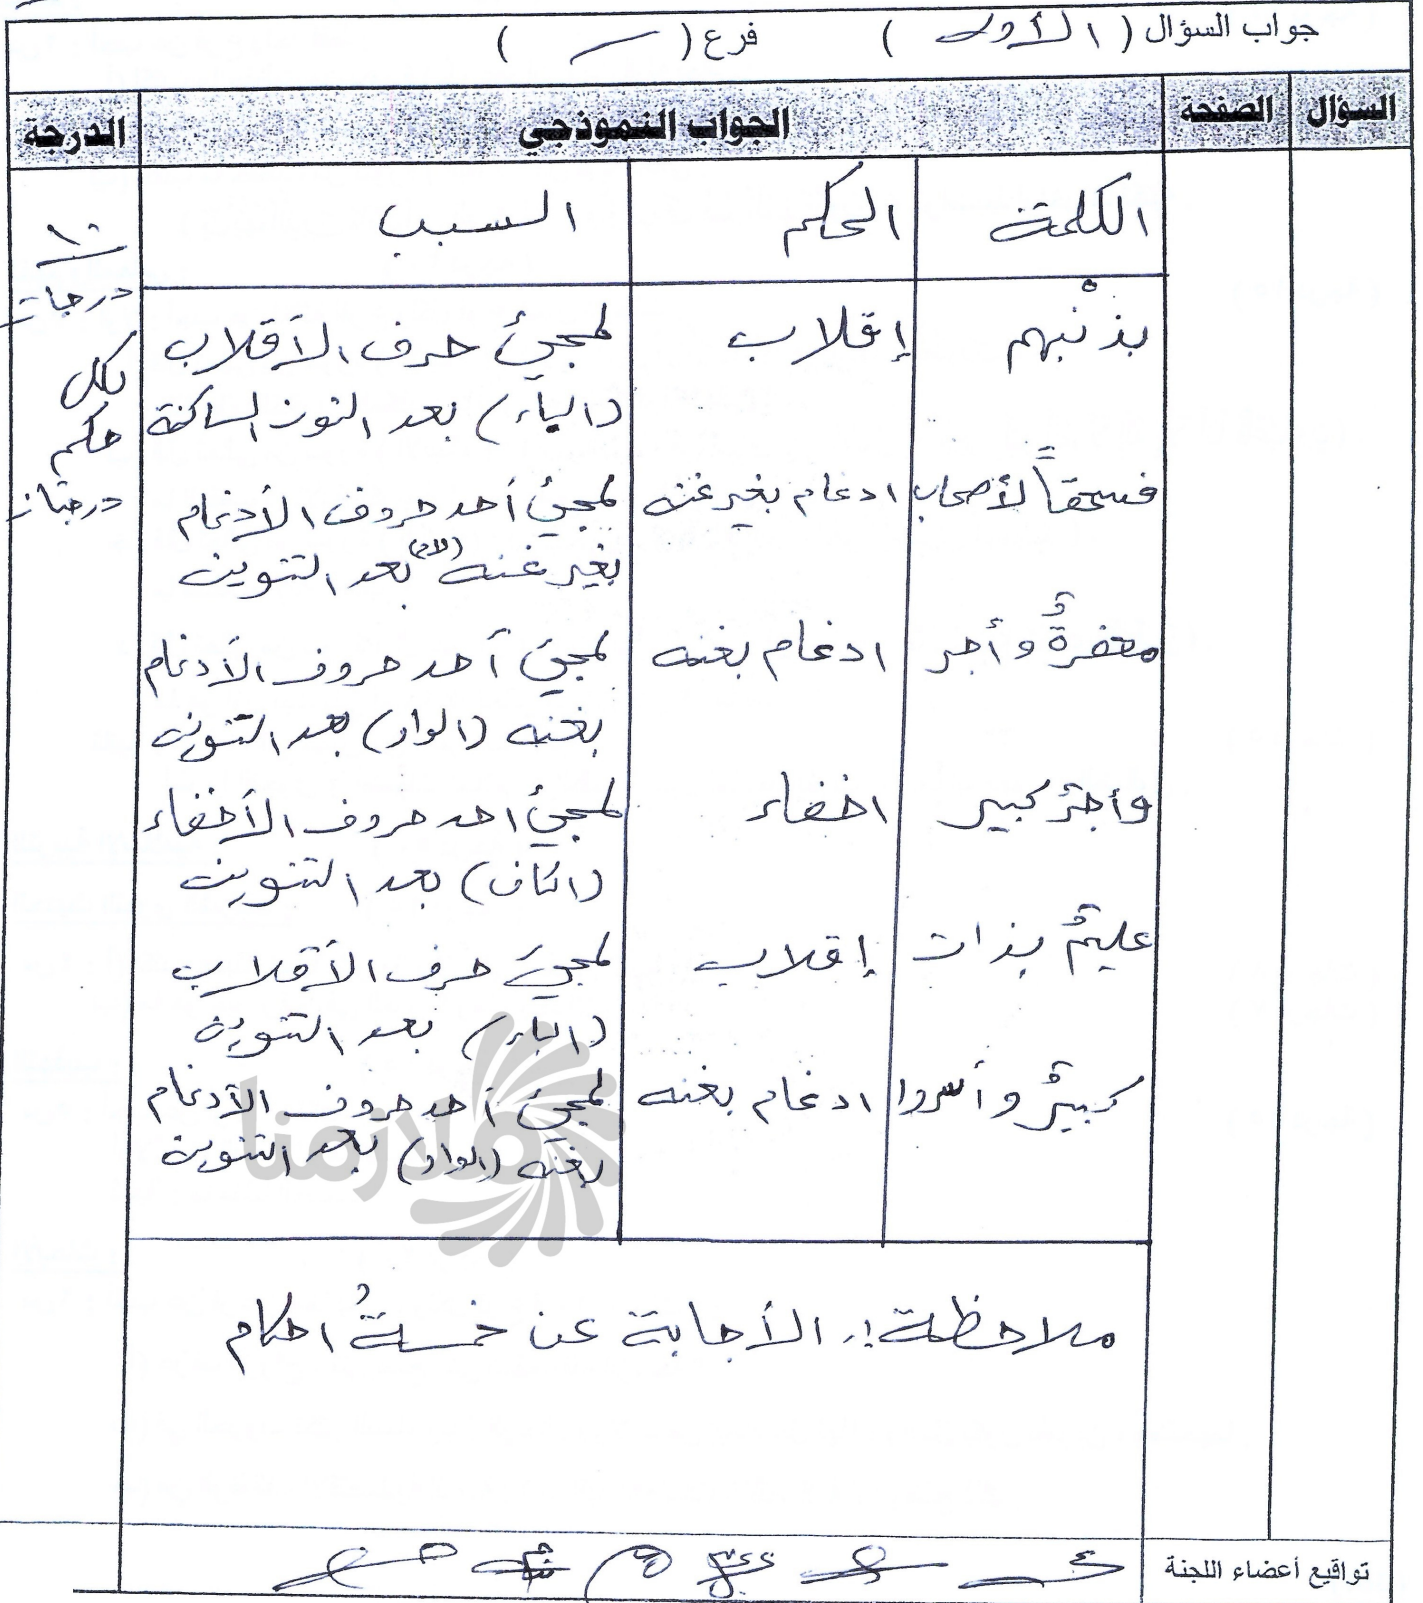 جواب السؤال ( الأول ) فرع ( )
السؤال الصفحة الجواب النموذجي الدرجة
الكلمة الحكم السبب
١٠
درجات
لكل
حكم
درجتان
بذنْبهم إقلاب لمجيئ حرف الأقلاب
(الباء) بعد النون الساكنة
فسحقاً لأصحاب ادغام بغير غنه لمجيئ أحد حروف الأدغام
بغير غنه (اللام) بعد التنوين
مغفرةٌ وأجر ادغام بغنه لمجيئ أحد حروف الأدغام
بغنه (الواو) بعد التنوين
وأجرٌ كبير اخفاء لمجيئ احد حروف الأخفاء
(الكاف) بعد التنوين
عليمٌ بذات إقلاب لمجيئ حرف الأقلاب
(الباء) بعد التنوين
كبيرٌ وأسروا ادغام بغنه لمجيئ أحد حروف الأدغام
بغنه (الواو) بعد التنوين
ملازمنا
ملاحظة :. الأجابة عن خمسةُ احكام
تواقيع أعضاء اللجنة